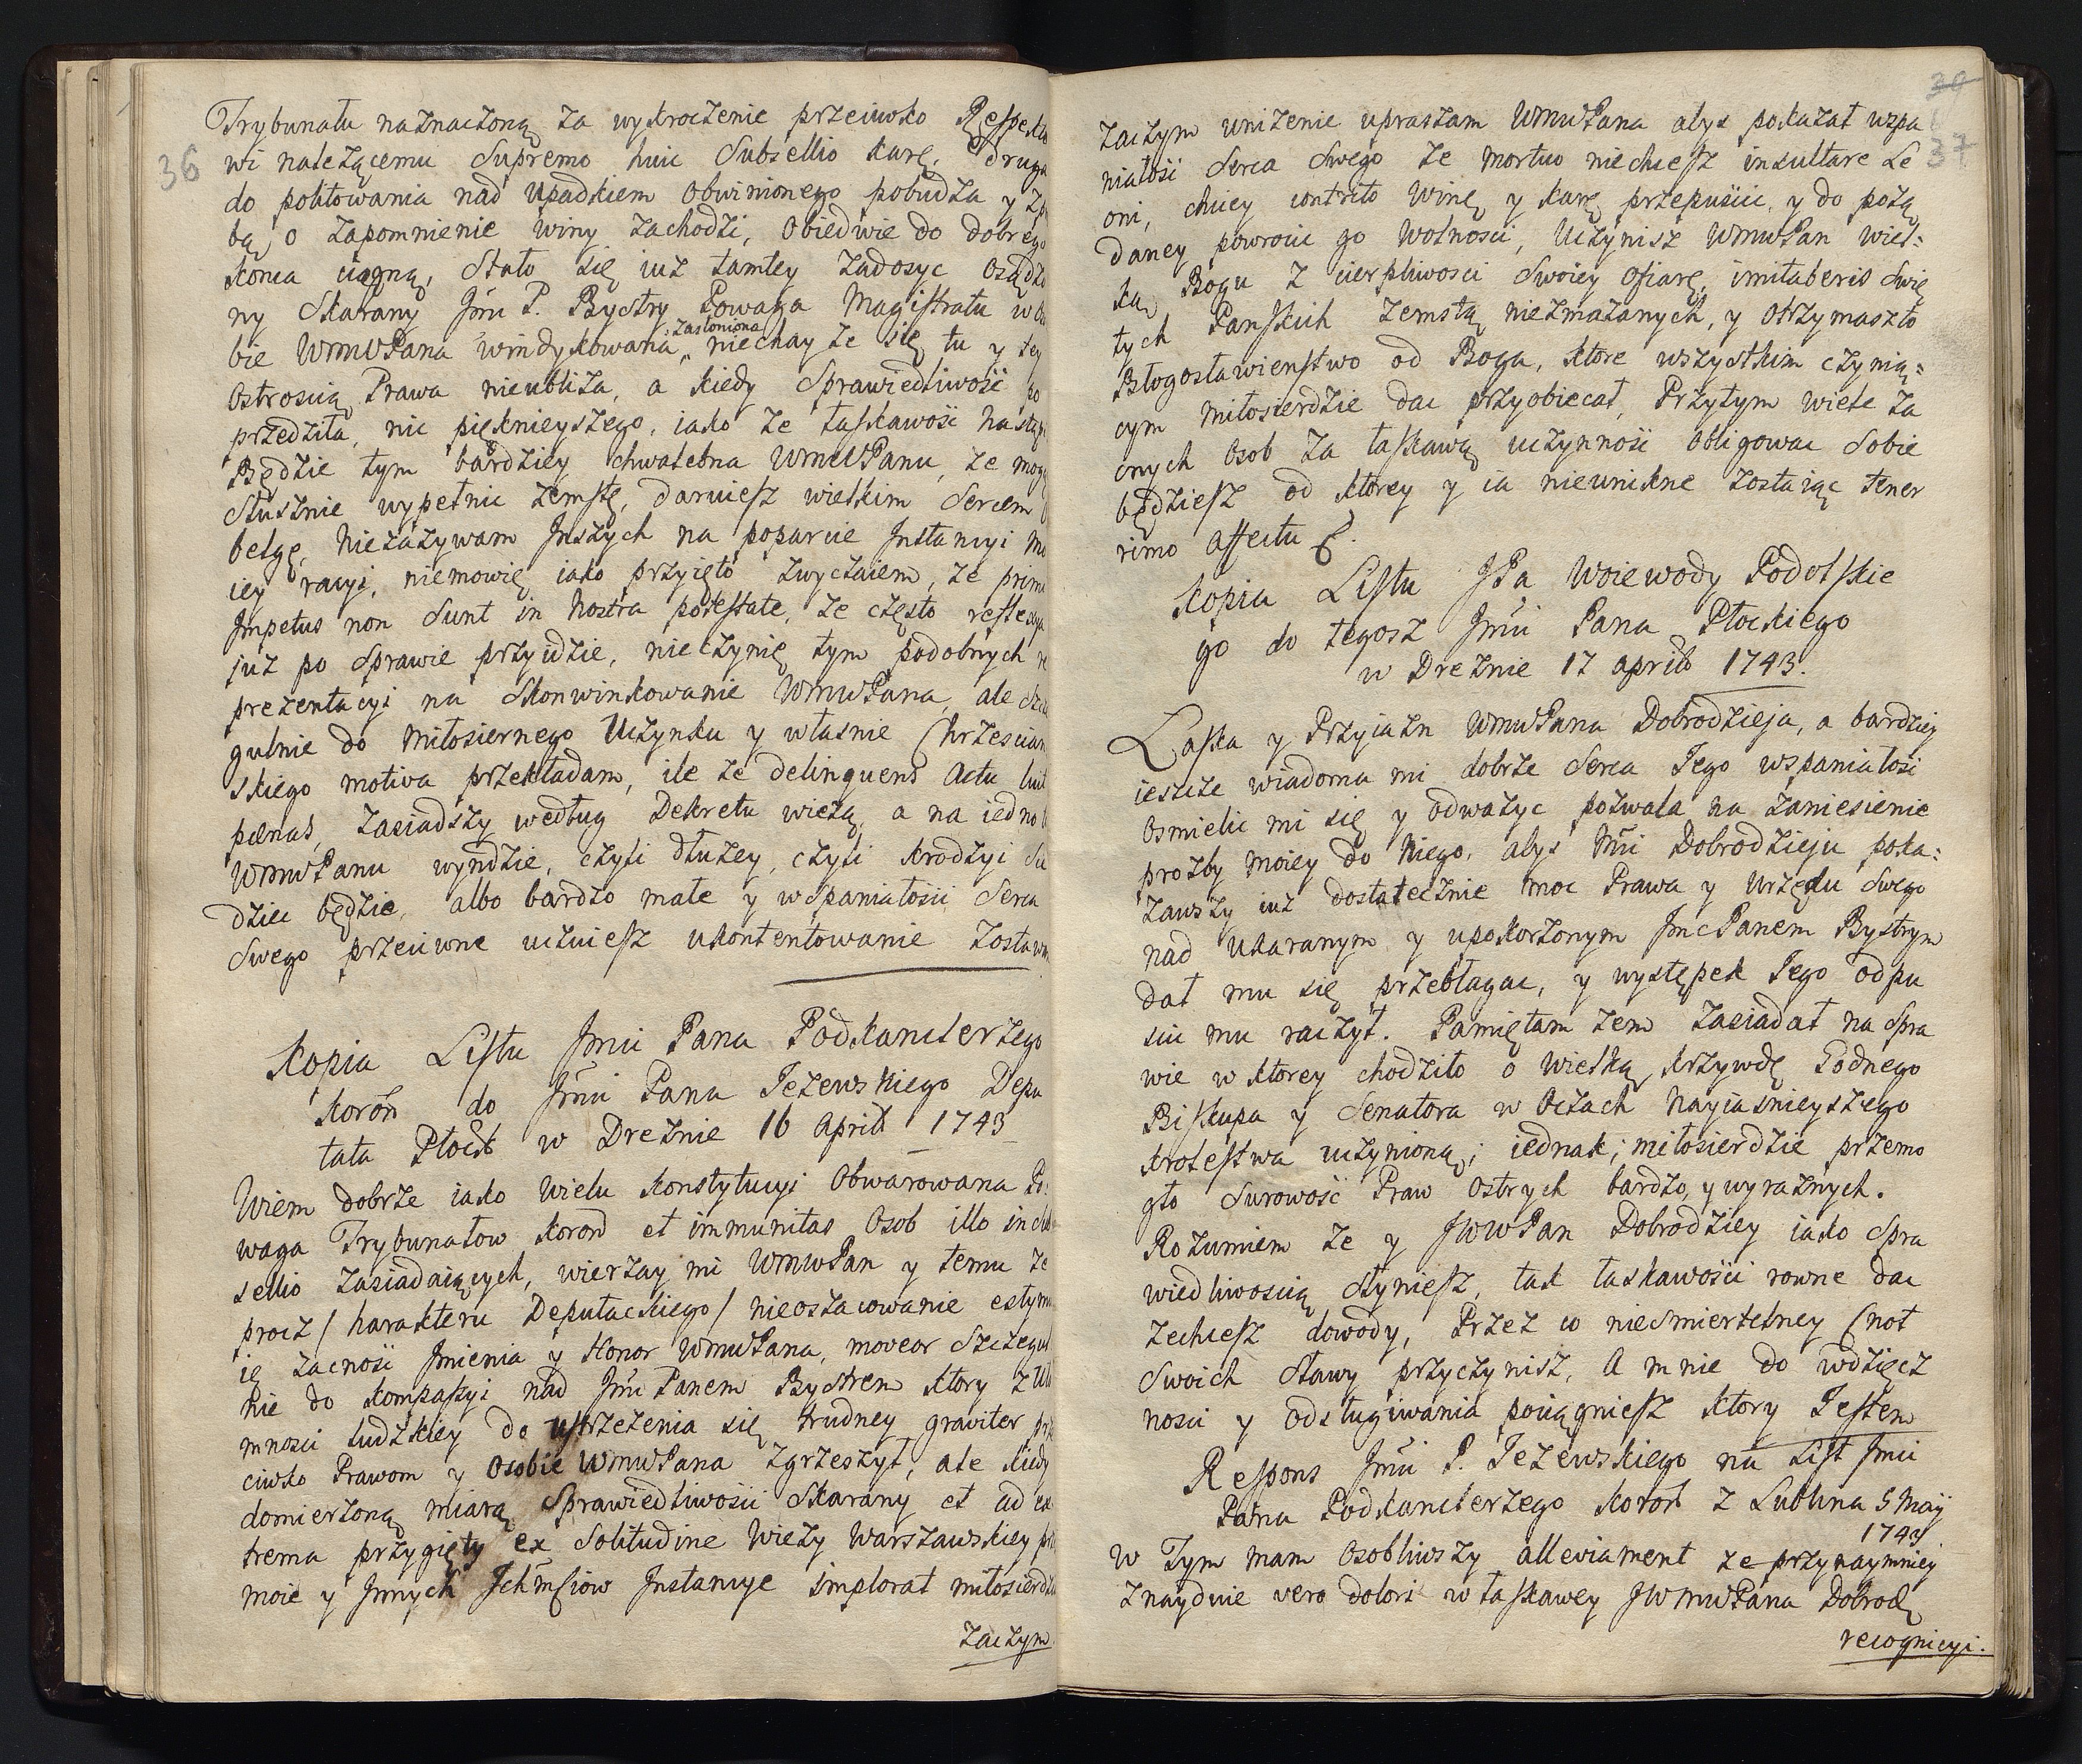 36
Trybunału naznaczoną za wykroczenie przeciwko Respekto
wi należącemu Supremo huic Subsellio karę. druga
do politowania nad Upadkiem Obwinionego pobudza y
bą o zapomnienie winy zachodzi, Obiedwie do dobrego
konca ciągną, Stało się iuz tamtey zadosyc Osądzo
ny Skarany Jmci P. Bystry Powaga Magistratu w
bie WmWPana windykowana, zasłoniona niechay ze się tu y tey
Ostroscią Prawa nieubliza, a kiedy Sprawiedliwość
przedziła, nic pięknieyszego, iako ze łaskawość
Będzie tym bardziey chwalebna WmWPanu, ze mogąc
słusznie wypełnic zemstę, daruiesz wielkim Sercem
belgę, Niezazywam Jnszych na poparcie Jnstancyi mo
iey racyi, niemowię iako przyięto zwyczaiem, ze primi
Jmpetus non Sunt in Nostra potestate, ze często reflexya
juz po Sprawie przyidzie, nieczynię tym podobnych re
prezentacyi na Skonwinkowanie WmWPana, ale szcze
gulnie do Miłosiernego Uczynku y własnie Chrzescian
skiego motiva przekładam, ile ze delinquens Actu luit
pœnas, zasiadszy według Dekretu wiezą, a na iedno
WmWPanu wyndzie, czyli dłuzey, czyli krodzyi Sie
dziec będzie, albo bardzo małe y wspaniałosci Serca
Swego przeciwne uczuiesz ukontentowanie Zostawam
Kopia Listu Jmci Pana Podkanclerzego
Koron do Jmci Pana Jezewskiego Depu
tata Płock w Dreznie 16 April 1743
Wiem dobrze iako Wielu Konstytucyi Obwarowana Po:
waga Trybunałow Koron et immunitas Osob illo in Sub
sellio zasiadaiących, wierzay mi WmWPan y temu ze
procz Charakteru Deputackiego nieoszacowanie estymu
ię zacność Jmienia y Honor WmWPana, moveor Szczegul
nie do Kompassyi nad Jmci Panem Bystrem ktory z
mnosci ludzkiey do ustrzezenia się trudney graviter prze
ciwko Prawom y Osobie WmWPana zgrzeszył, ale kiedy
domierzoną miarą Sprawiedliwosci Skarany et ad ex
trema przygięty ex Solitudine Wiezy Warszawskiey przez
moie y Jnnych Jchmciow Jnstancye implorat miłosierdzia
Zaczym
39
37
zaczym unizenie upraszam WmWPana abys pokazał wspa
niałość Serca Swego ze mortuo niechcesz insultare Le
oni, chciey contrito Winę y karę przepuścic, y do pożą
daney powrocic go Wolnosci, Uczynisz WmWPan wiel:
ką Bogu z cierpliwosci Swoiey ofiarę, imitaberis Swię
tych Panskich zemstą niezmazanych, y Otrzymasz to
Błogosławienstwo od Boga, ktore wszystkim czynią:
cym Miłosierdzie dac przyobiecał, Przytym wiele Za
cnych Osob za łaskawą uczynność Obligowac Sobie
będziesz od ktorey y ia nieuniknę zostaiąc tener
rimo affectu
Kopia Listu JPa Woiewody Podolskie
go do tegosz Jmci Pana Płockiego
w Dreznie 17 april 1743.
Łaska y Przyiazn WmWPana Dobrodzieja, a bardziey
ieszcze wiadoma mi dobrze Serca Jego wspaniałość
Osmielic mi się y odwazyc pozwala na zaniesienie
prozby moiey do Niego. abys Mci Dobrodzieju poka:
zawszy iuz dostatecznie moc Prawa y Urzędu Swego
nad Ukaranym y upokorzonym JmcPanem Bystrym
dał mu się przebłagac, y występek Jego odpu
scic mu raczył. Pamiętam zem zasiadał na Spra
wie w ktorey chodziło o Wielką krzywdę Godnego
Biskupa y Senatora w Oczach Nayiasnieyszego
Krolestwa uczynioną; iednak; miłosierdzie przemo
gło Surowość Praw Ostrych bardzo, y wyraznych.
Rozumiem ze y JWWPan Dobrodziey iako Spra
wiedliwoscią słyniesz, tak łaskawości rowne dac
zechcesz dowody, Przez co niesmiertelney Cnot
Swoich Sławy przyczynisz, A mnie do wdzięcz
nosci y odsługiwania pociągniesz ktory Jestem
Respons Jmci P. Jezewskiego na List Jmci
Pana Podkanclerzego Koron z Lublina 5 Maij
1743
W Tym mam Osobliwszy alleviament ze przynaymniey
Znayduie vero dolori w łaskawey JWmWPana Dobrodz
recognicyi.